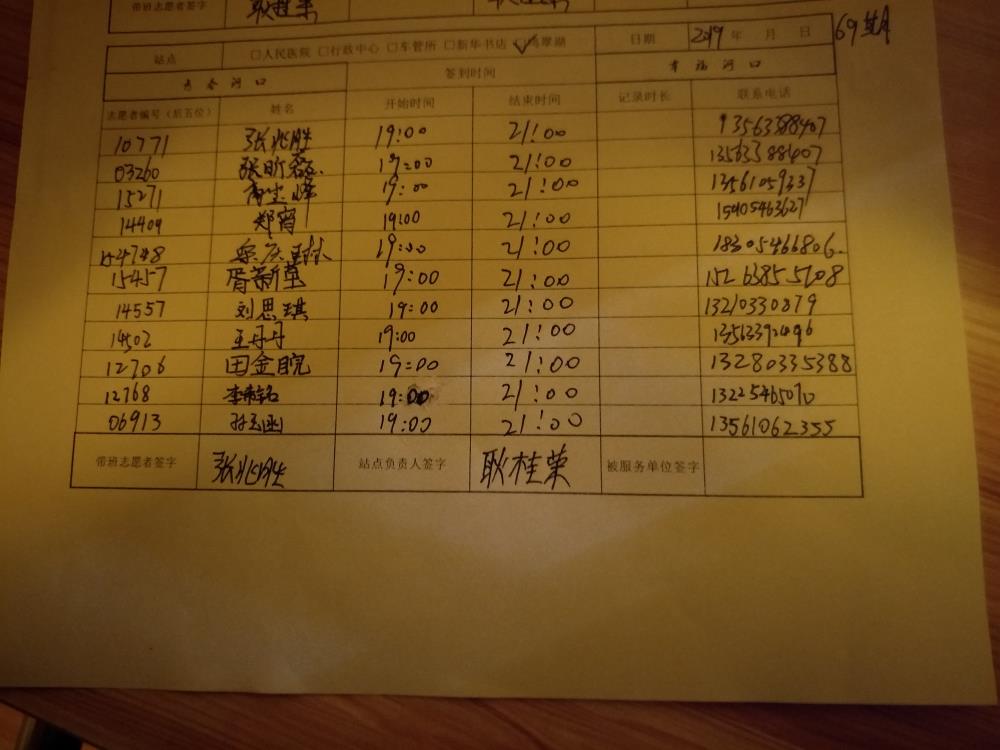 带班志愿者签字
站点 □人民医院 □行政中心 □车管所 □新华书店 ☑鸣翠湖 日期 2019 年 月 日 69
青春河口 签到时间 幸福河口
志愿者编号（后五位） 姓名 开始时间 结束时间 记录时长 联系电话
10771 张兆胜 19:00 21:00 13563388407
03260 张昕 19:00 21:00 13563388407
15271 19:00 21:00 13561059337
14409 郑宵 19:00 21:00 15905463627
19:00 21:00 18305466806
15457 胥新莹 19:00 21:00
14557 刘思琪 19:00 21:00 13210330879
14502 王丹丹 19:00 21:00
12706 田金皖 19:00 21:00 13280335388
12768 李 铭 19:00 21:00 13225465070
06913 孙 19:00 21:00 13561062355
带班志愿者签字 张兆胜 站点负责人签字 耿桂荣 被服务单位签字